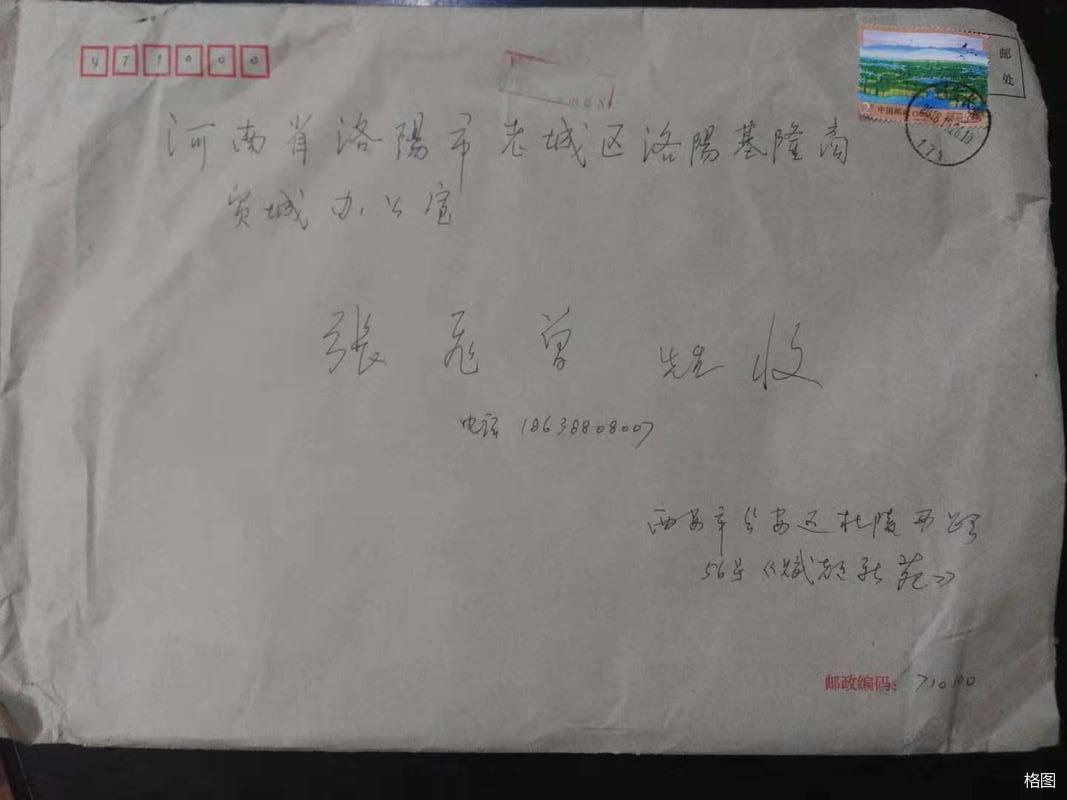 471000
邮
处
河南省洛陽市老城区洛陽基隆商
贸城办公室
中国邮政
张飛曾 先生 收
电话 18638808007
西安市长安区杜陵西路
56号《斌都新苑》
邮政编码: 710100
格图